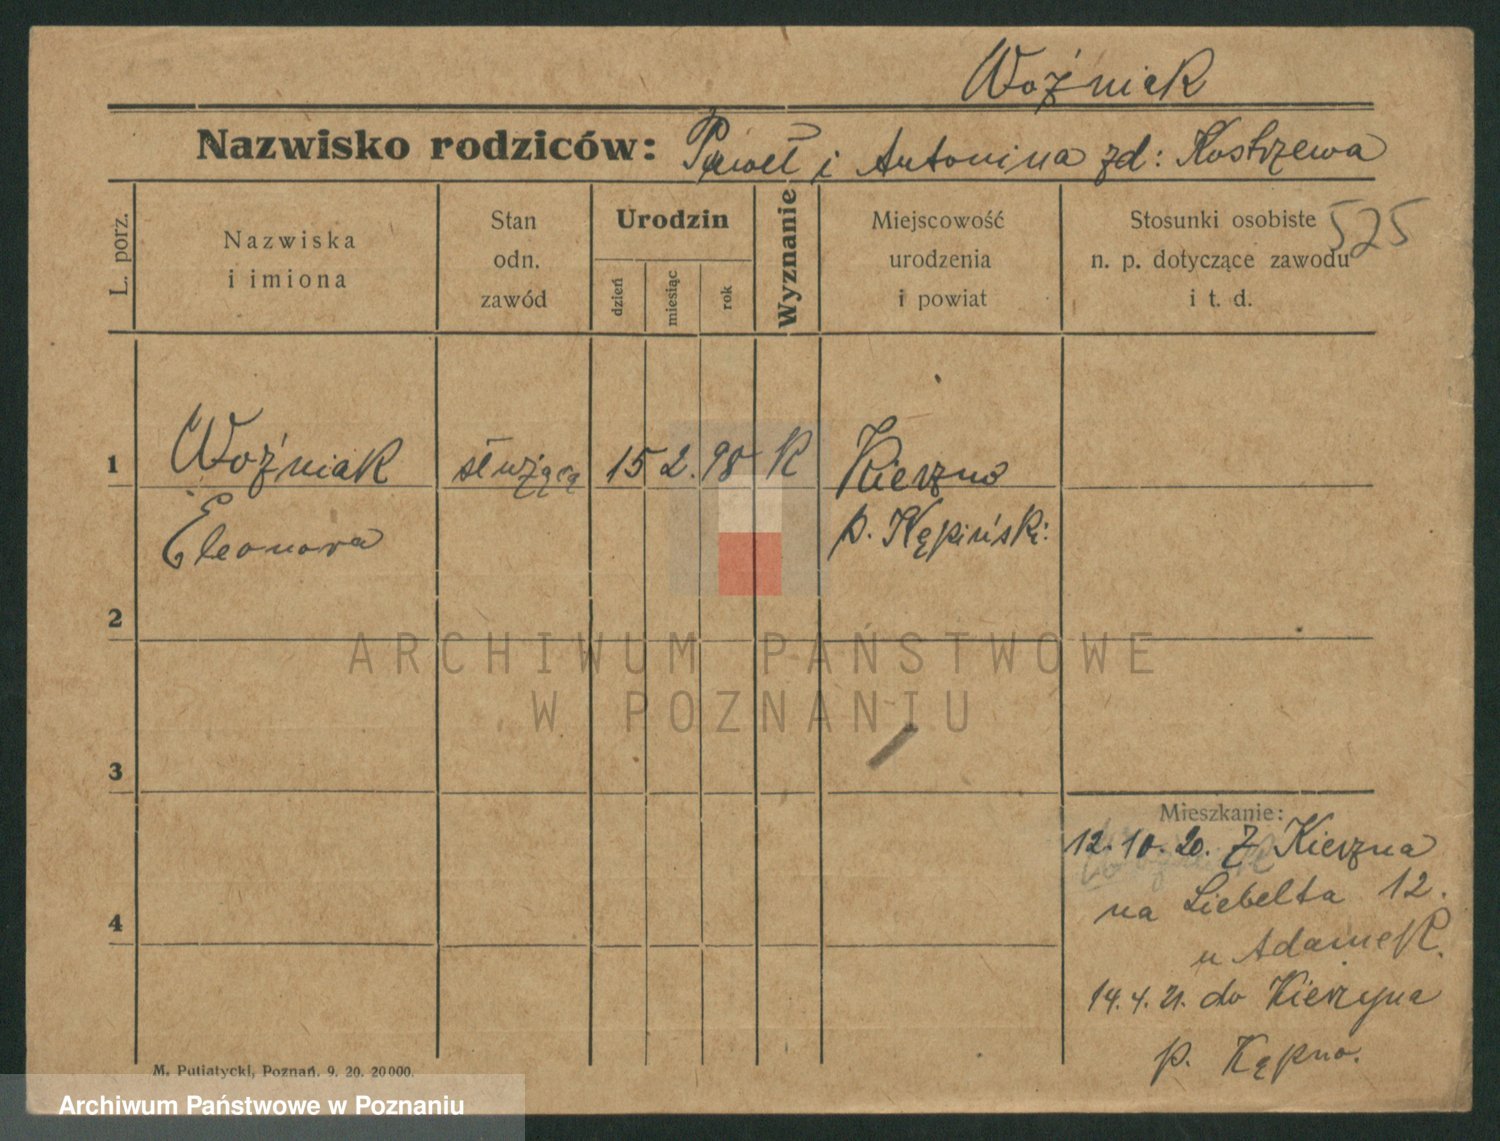 Woźniak
Nazwisko rodziców: Paweł i Antonina zd: Kostrzewa
L. porz.
Nazwiska
i imiona
Stan
odn.
zawód
Urodzin
dzień
miesiąc
rok
Wyznanie
Miejscowość
urodzenia
i powiat
Stosunki osobiste
n. p. dotyczące zawodu
i t. d.
525
1
Woźniak
służącą
15
2.
98
K
Kierzno
Eleonora
p. Kępiński:
2
ARCHIWUM PAŃSTWOWE
W POZNANIU
3
Mieszkanie:
12.10.20. Z Kierzna
na Liebelta 12.
u Adamek.
4
14.4.21. do Kierzyna
p. Kępno.
M. Putiatycki, Poznań. 9. 20. 20000.
Archiwum Państwowe w Poznaniu